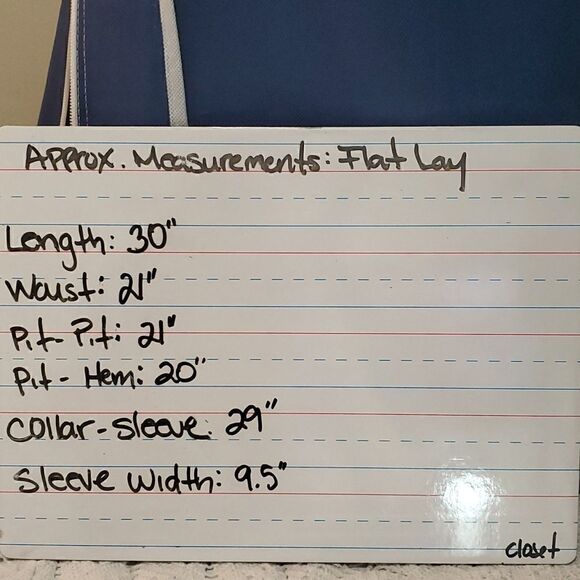 Approx. Measurements: Flat Lay
Length: 30"
Waist: 21"
Pit-Pit: 21"
Pit-Hem: 20"
Collar-Sleeve: 29"
Sleeve Width: 9.5"
closet